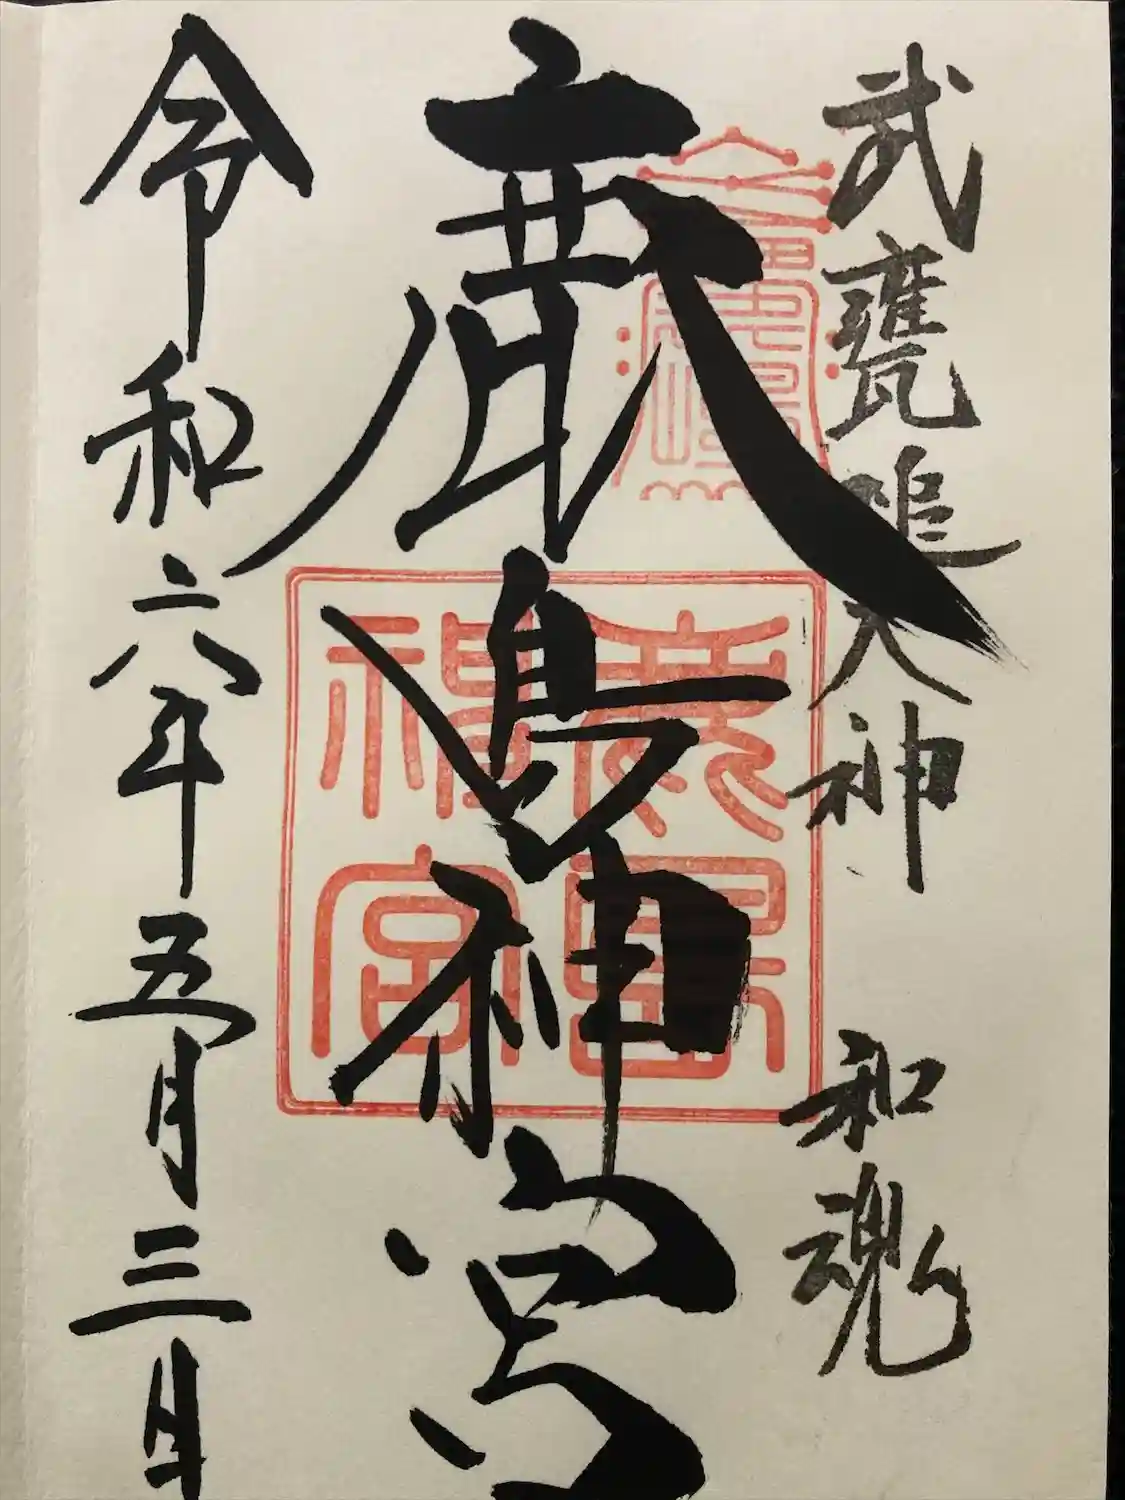 武甕槌大神 和魂
鹿島神宮
令和六年五月三日
鹿島神宮